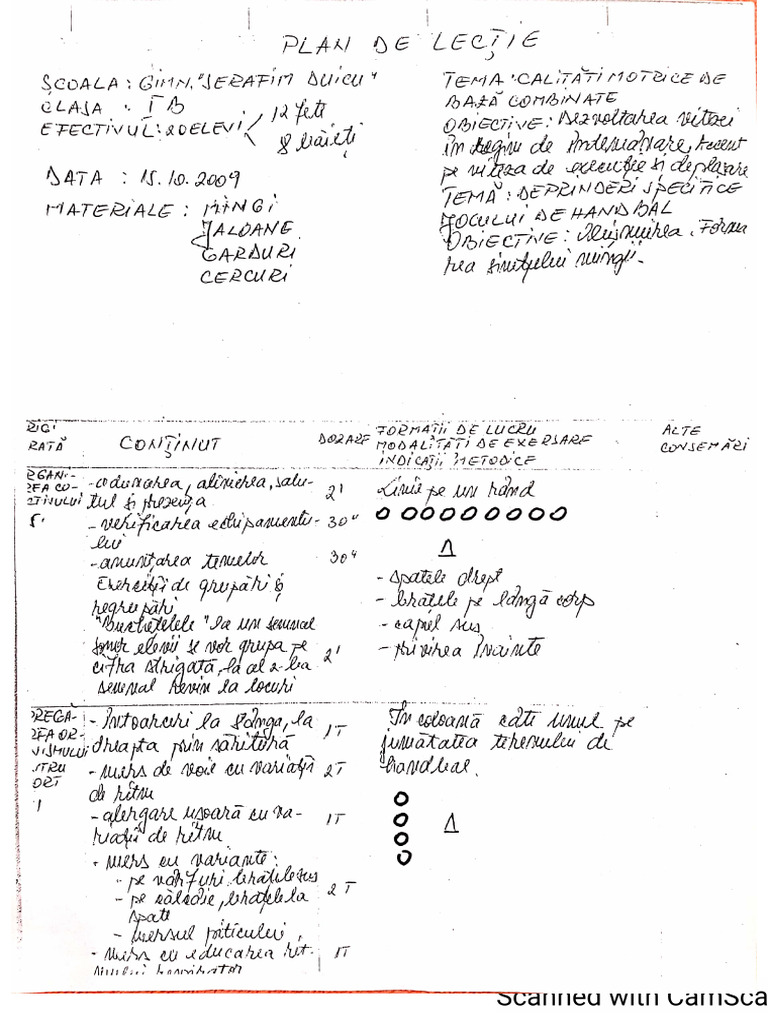 PLAN DE LECȚIE
ȘCOALA : GIMN. "SERAFIM DUICU"
CLASA : I B
EFECTIVUL: 20 ELEVI 12 fete
8 băieți
DATA : 15.10.2009
MATERIALE : MINGI
JALOANE
GARDURI
CERCURI
TEMA : CALITĂȚI MOTRICE DE
BAZĂ COMBINATE
OBIECTIVE: Dezvoltarea vitezei
în regim de îndemânare, Accent
pe viteza de execuție și deplasare
TEMĂ : DEPRINDERI SPECIFICE
JOCULUI DE HANDBAL
OBIECTIVE: Obișnuirea. Forma
rea simțului mingii.
RIGI
RATĂ
CONȚINUT
DOZARE
FORMAȚII DE LUCRU
MODALITĂȚI DE EXERSARE
INDICAȚII METODICE
ALTE
CONSEMĂRI
RGANI-
REA CO-
CTIVULUI
5'
- adunarea, alinierea, salu-
tul și prezența 2'
- verificarea echipamentu- 30"
lui
- anunțarea temelor 30"
Exerciții de grupări și
regrupări
"Buchetelele" la un semnal
sonor elevii se vor grupa pe
cifra strigată, la al 2-lea 2'
semnal revin la locuri
Linie pe un rând
- spatele drept
- brațele pe lângă corp
- capul sus
- privirea înainte
PREGĂ-
REA OR-
ISMULUI
TRU
ORT
- Întoarceri la stânga, la 1T
dreapta prin săritură
- mers de voie cu variații 2T
de ritm
- alergare ușoară cu va- 1T
riații de ritm
- mers cu variante:
- pe vârfuri, brațele sus
- pe călcâie, brațele la 2T
spate
- mersul piticului,
- mers cu educarea rit- 1T
mului respirator
În coloană câte unul pe
jumătatea terenului de
handbal.
Scanned with CamSca